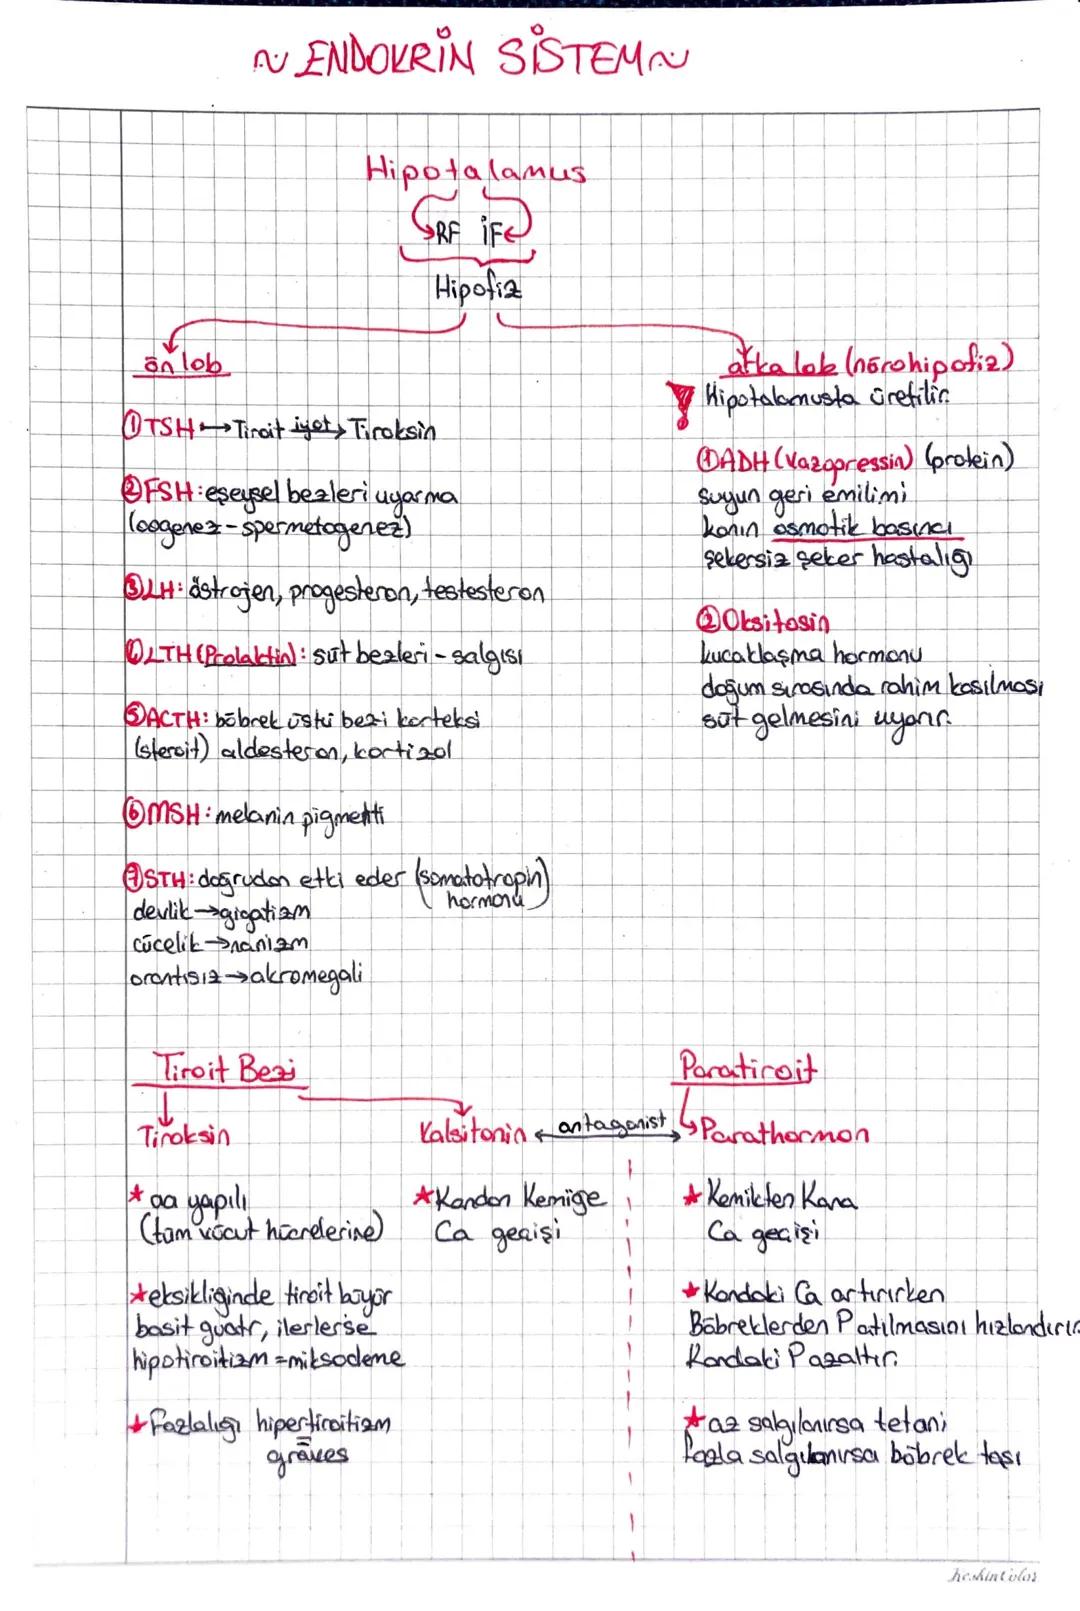 ~ ENDOKRİN SİSTEM ~
Hipotalamus
RF İF
Hipofiz
ön lob
① TSH → Tiroit iyot → Tiroksin
② FSH: eşeysel bezleri uyarma
(oogenez - spermetogenez)
③ LH: östrojen, progesteron, testesteron
④ LTH (Prolaktin): süt bezleri - salgısı
⑤ ACTH: böbrek üstü bezi korteksi
(steroit) aldesteron, kortizol
⑥ MSH: melanin pigmenti
⑦ STH: doğrudan etki eder (somatotropin
hormonu)
devlik → gigatizm
cücelik → nanizm
orantısız → akromegali
arka lob (nörohipofiz)
! Hipotalamusta üretilir.
① ADH (Vazopressin) (protein)
suyun geri emilimi
kanın osmotik basıncı
şekersiz şeker hastalığı
② Oksitosin
kucaklaşma hormonu
doğum sırasında rahim kasılması
süt gelmesini uyarır.
Tiroit Bezi
Tiroksin
* aa yapılı
(tüm vücut hücrelerine)
* eksikliğinde tiroit büyür
basit guatr, ilerlerse
hipotiroitizm = miksodeme
* Fazlalığı hipertiroitizm
=
graves
Kalsitonin ← antagonist →
* Kandan Kemiğe
Ca geçişi
Paratiroit
Parathormon
* Kemikten Kana
Ca geçişi
* Kandaki Ca artırırken
Böbreklerden P atılmasını hızlandırır.
Kandaki P azaltır.
* az salgılanırsa tetani
fazla salgılanırsa böbrek taşı